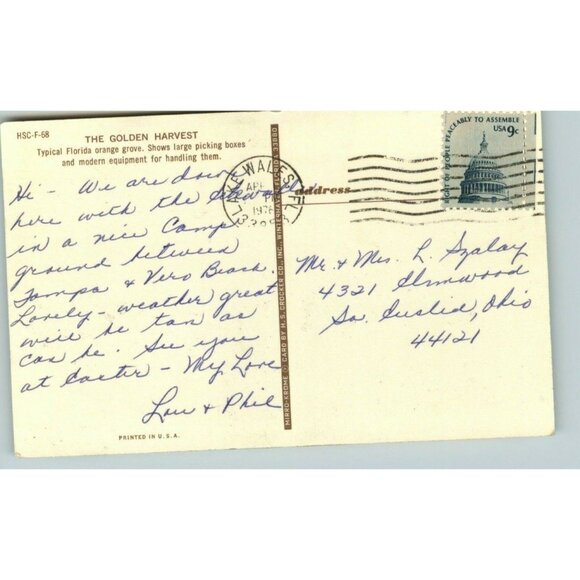 HSC-F-68
THE GOLDEN HARVEST
Typical Florida orange grove. Shows large picking boxes
and modern equipment for handling them.
Hi - We are down
here with the
in a nice Camp
ground between
Tampa & Vero Beach.
Lovely - weather great
will be tan as
can be. See you
at Easter - My Love
Lou & Phil
PRINTED IN U.S.A.
MIRRO-KROME ® CARD BY H. S. CROCKER CO., INC. WINTER HAVEN, FLORIDA 33880
LAKE WALES, FL
APR
1976
338
RIGHT OF PEOPLE PEACEABLY TO ASSEMBLE
USA 9c
address
Mr. & Mrs. L. Szalay
4321 Elmwood
So. Euclid, Ohio
44121